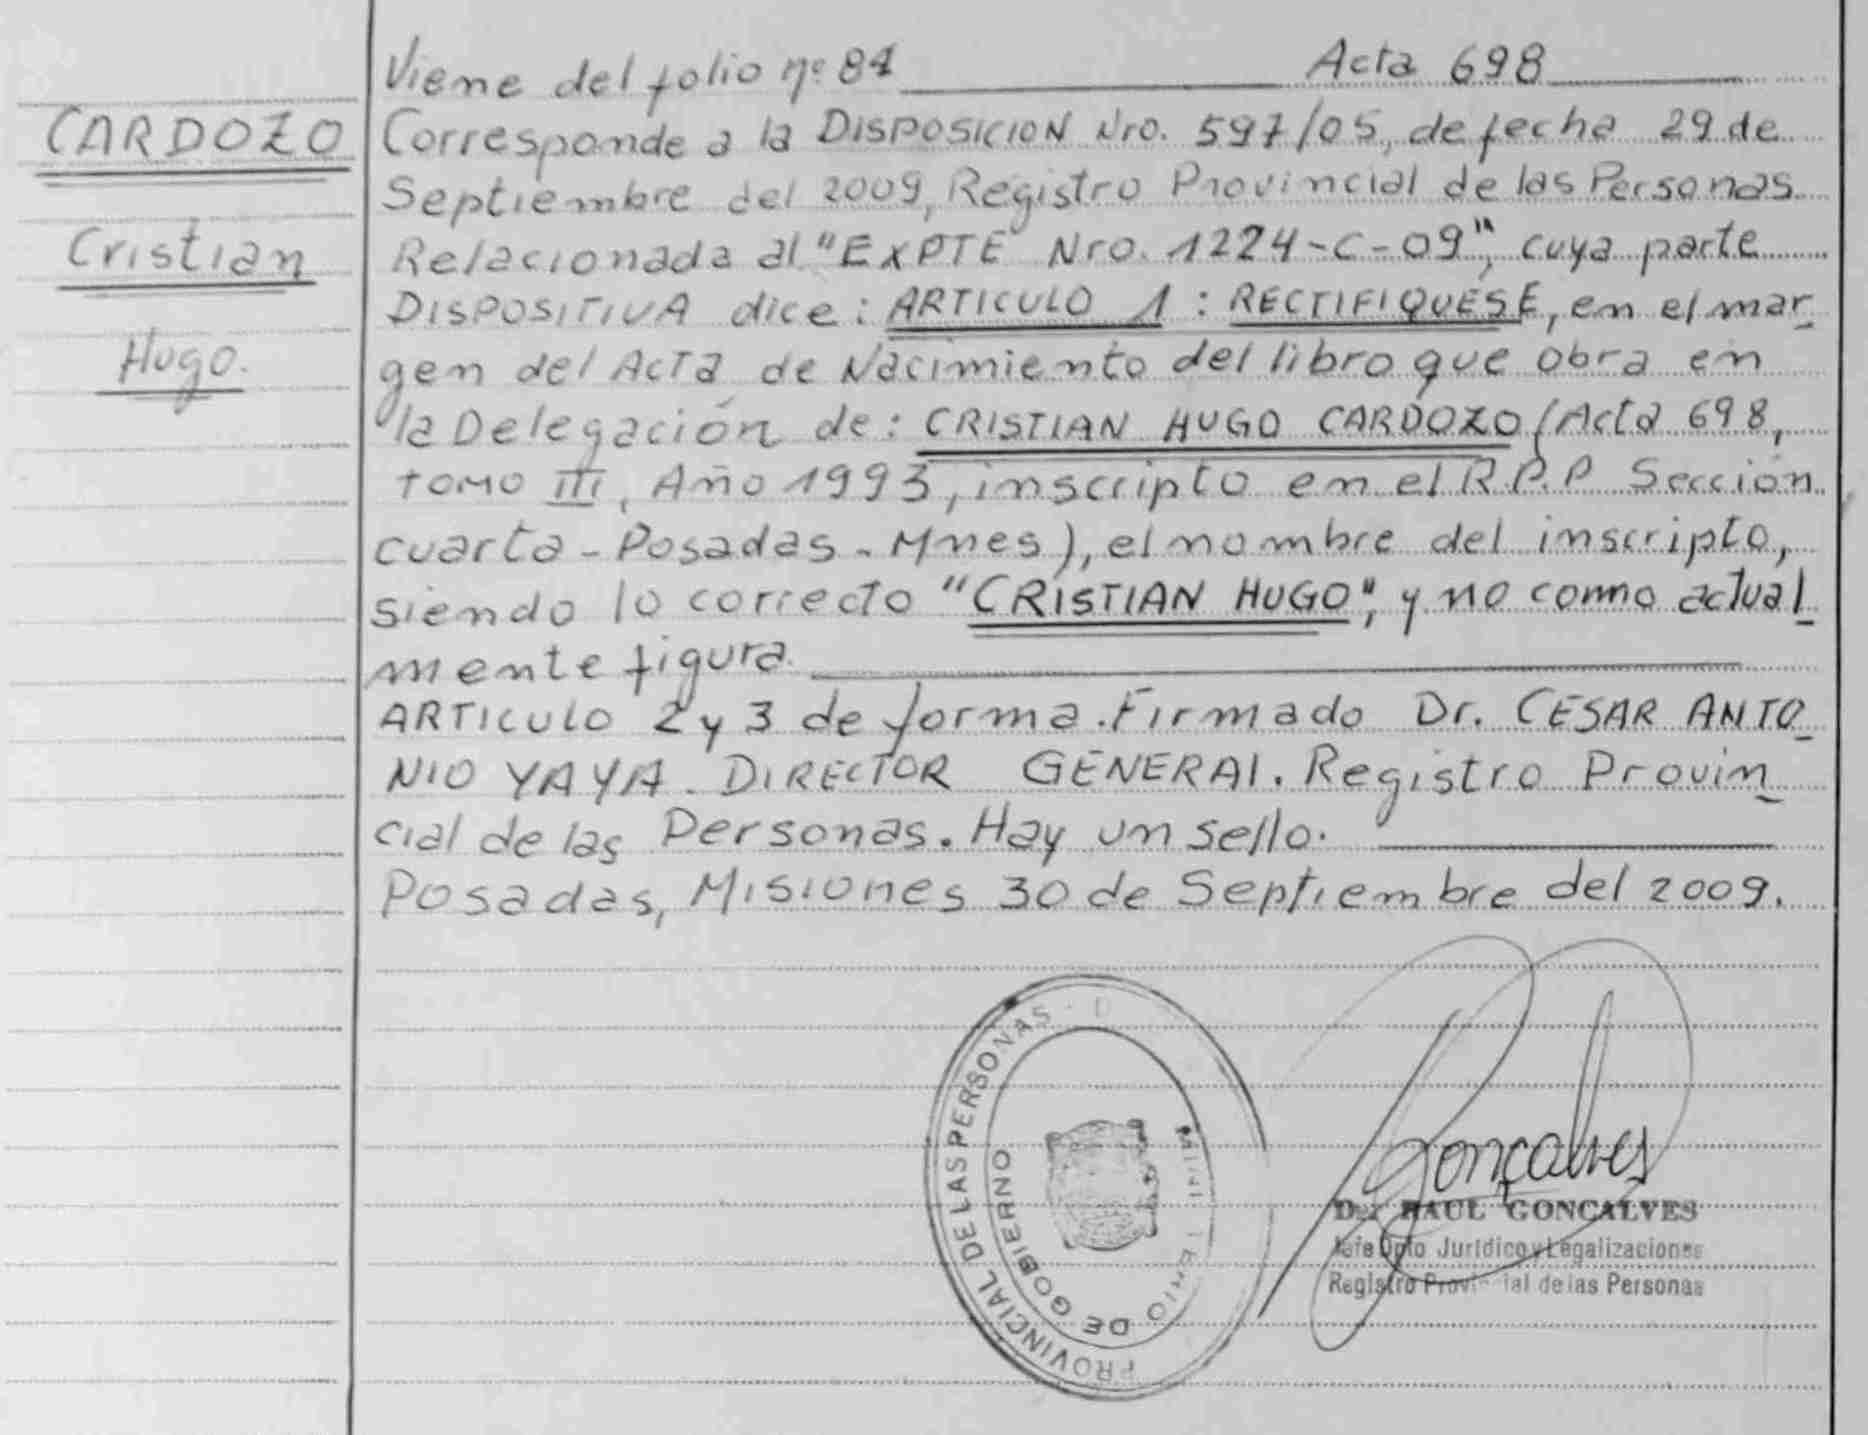 CARDOZO
Cristian
Hugo.
Viene del folio nº 84 Acta 698
Corresponde a la DISPOSICION Nro. 597/05, de fecha 29 de
Septiembre del 2009, Registro Provincial de las Personas.
Relacionada al "EXPTE Nro. 1224-C-09", cuya parte
DISPOSITIVA dice: ARTICULO 1: RECTIFIQUESE, en el mar-
gen del Acta de Nacimiento del libro que obra en
la Delegación de: CRISTIAN HUGO CARDOZO (Acta 698,
TOMO III, Año 1993, inscripto en el R.P.P Sección
cuarta - Posadas - Mnes), el nombre del inscripto,
siendo lo correcto "CRISTIAN HUGO", y no como actual-
mente figura.
ARTICULO 2 y 3 de forma. Firmado Dr. CESAR ANTO-
NIO YAYA. DIRECTOR GENERAL. Registro Provin-
cial de las Personas. Hay un sello.
Posadas, Misiones 30 de Septiembre del 2009.
PROVINCIAL DE LAS PERSONAS - D
DE GOBIERNO
Gonçalves
Dr. RAUL GONCALVES
Jefe Dpto Jurídico y Legalizaciones
Registro Provincial de las Personas